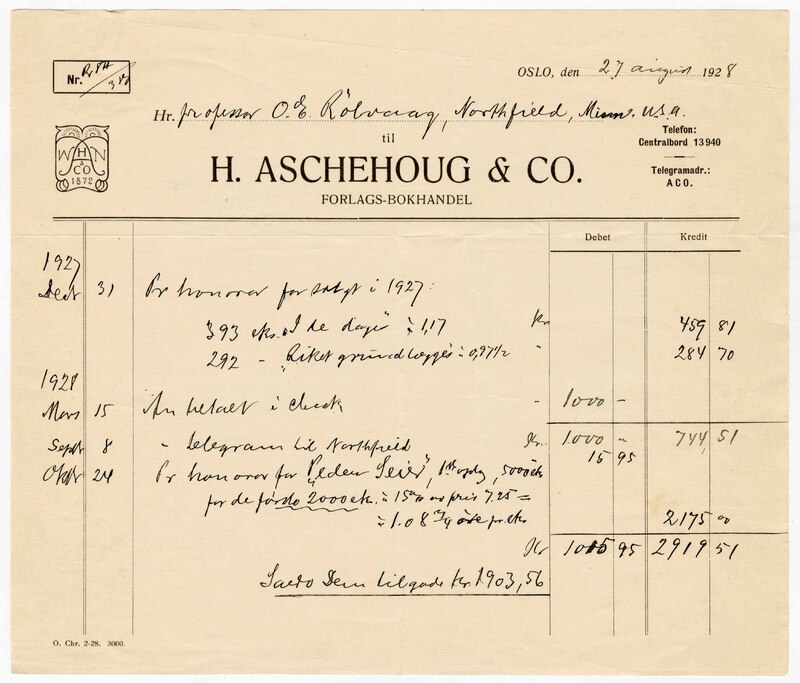 Nr.
OSLO, den 27 august 1928
Hr. professor O. E. Rölvaag, Northfield, Minn. U.S.A.
til
Telefon:
Centralbord 13940
Telegramadr.:
ACO.
W H N
& CO
1872
H. ASCHEHOUG & CO.
FORLAGS-BOKHANDEL
Debet Kredit
1927
Decbr 31 Pr honorar for solgt i 1927:
393 eks. „I de dage" à 1,17 Kr 459 81
292 - „Riket grundlægges" à 0,97½ " 284 70
1928
Mars 15 An betalt i check - 1000 -
Kr. 1000 - 744 51
Septbr 8 " telegram til Northfield 15 95
Oktbr 24 Pr honorar for "Peder Seier", 1ste opl, 5000 eks
for de første 2000 eks. à 15% av pris 7.25 =
à 1.08 ¾ øre pr. eks 2175 00
Kr 1015 95 2919 51
Saldo Dem tilgode kr. 1903,56
O. Chr. 2-28. 3000.